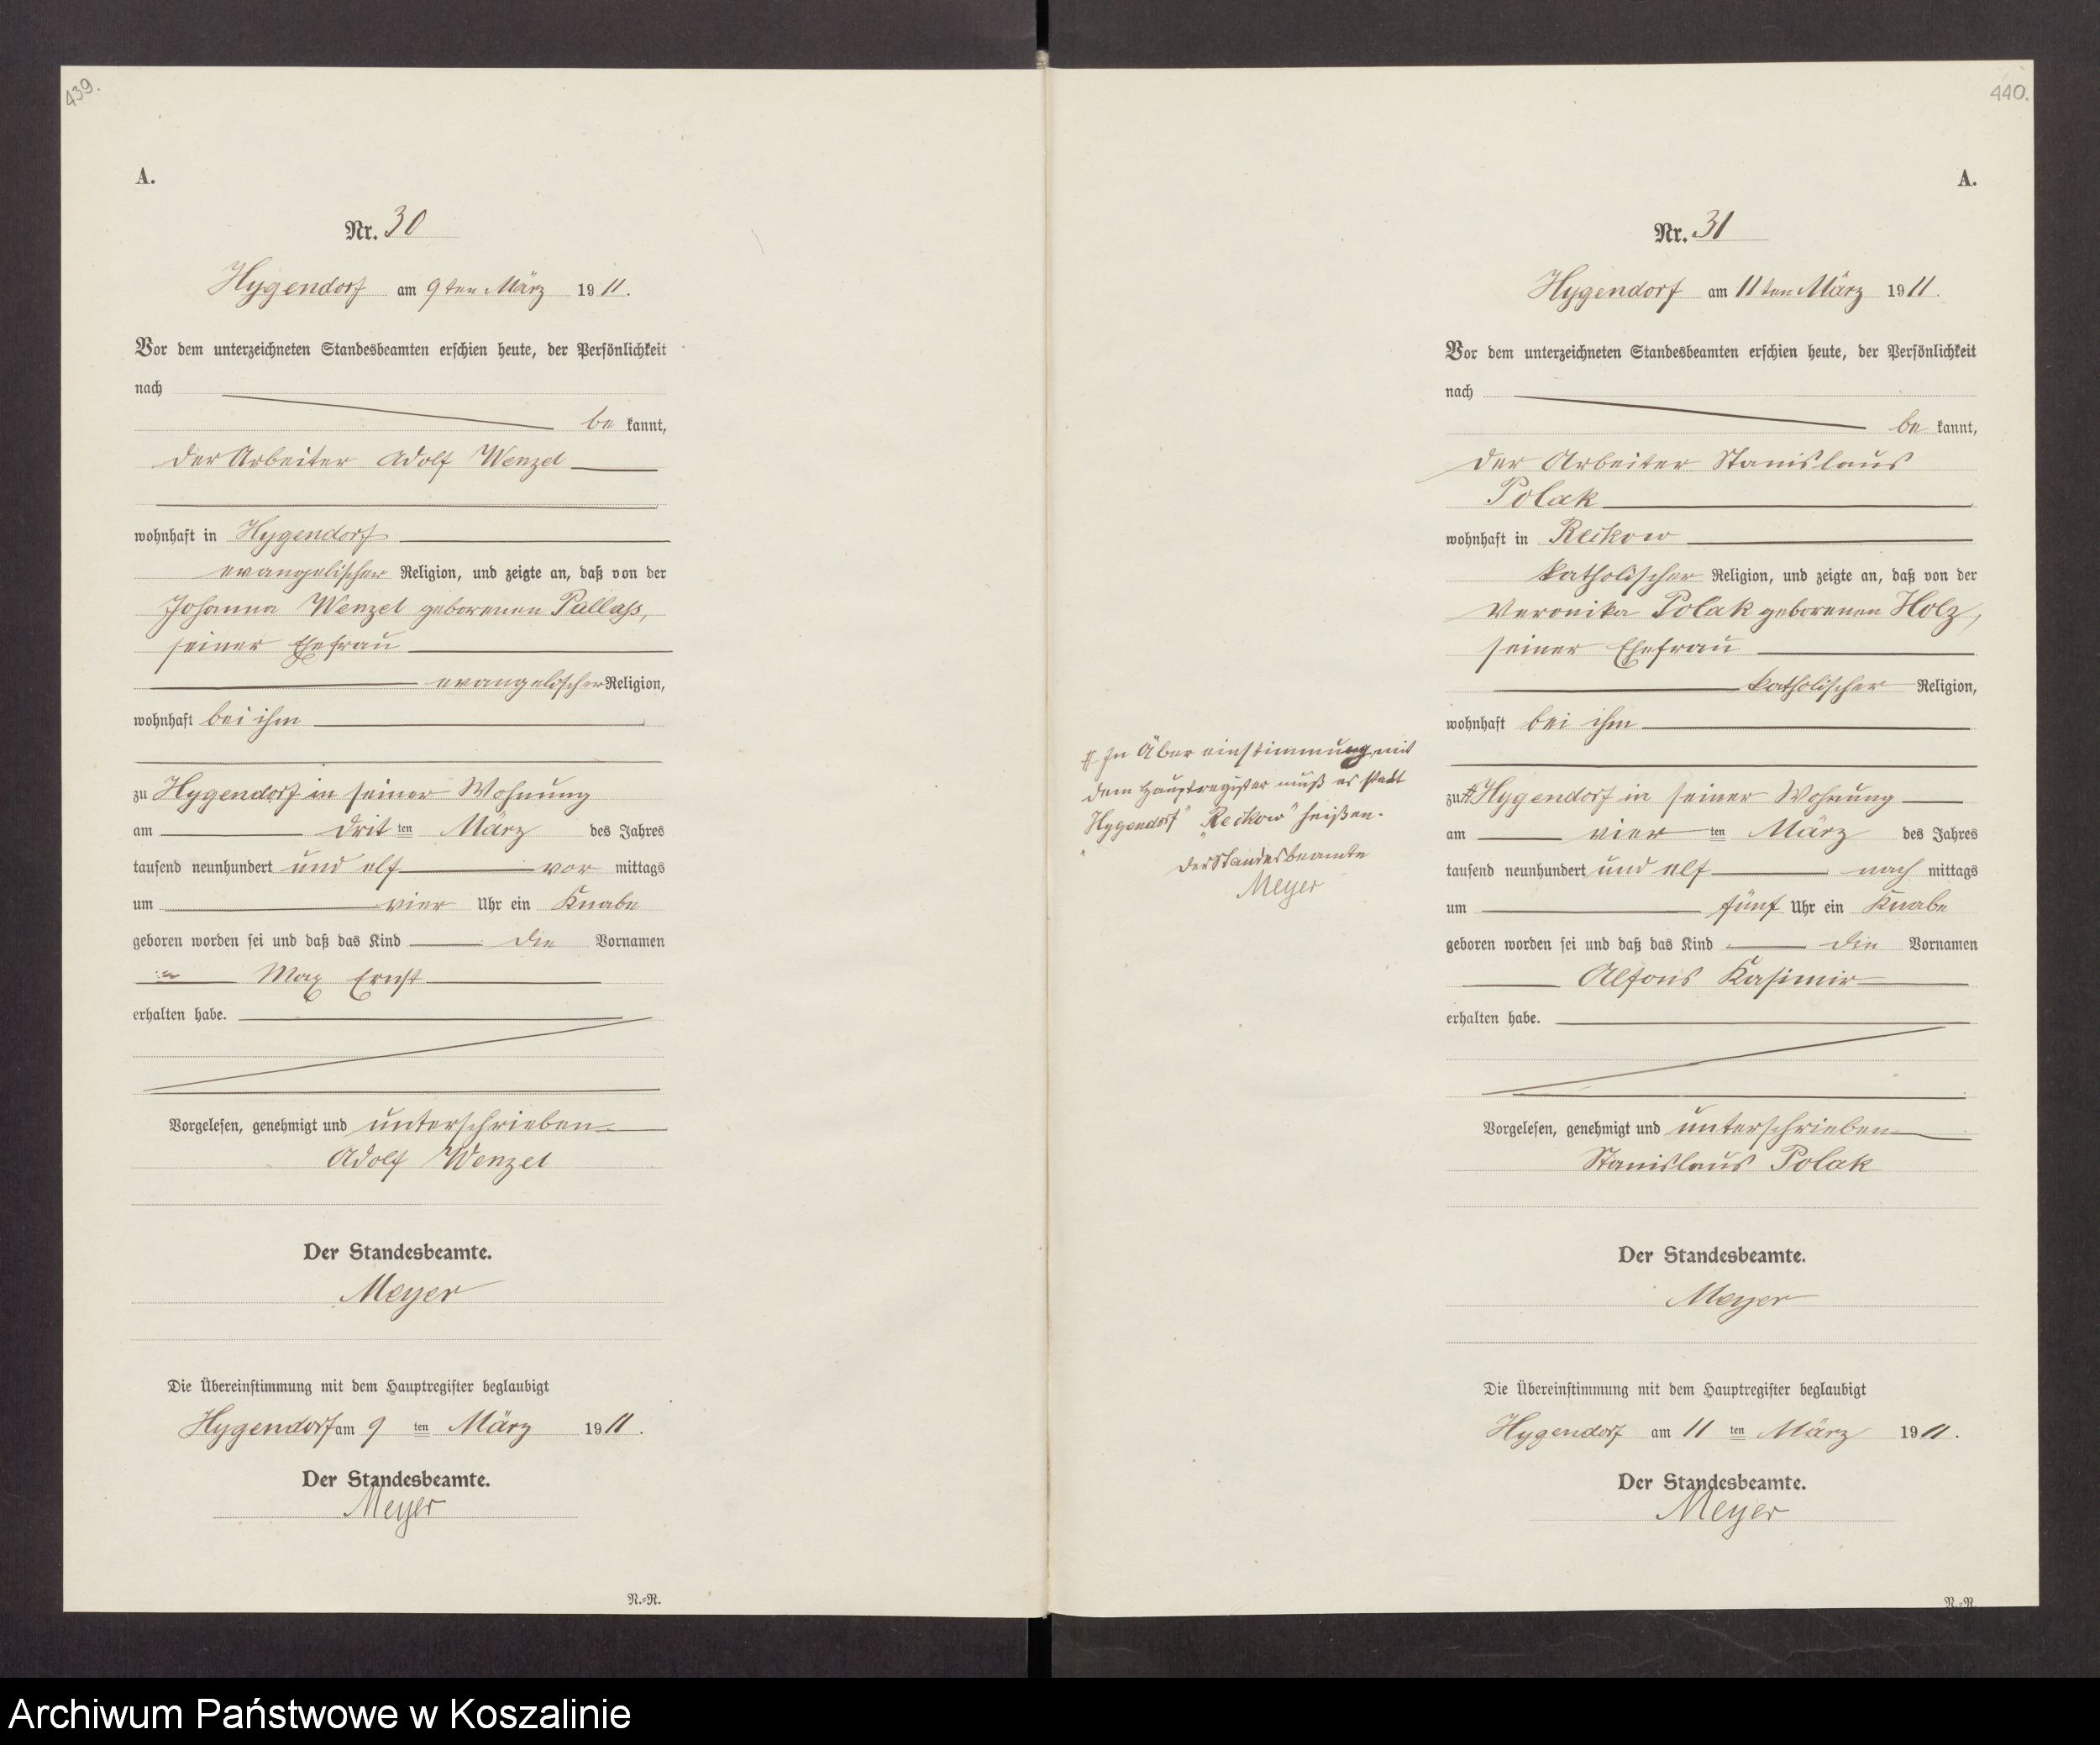 439.
A.
Nr. 30
Hygendorf am 9ten März 1911.
Vor dem unterzeichneten Standesbeamten erschien heute, der Persönlichkeit
nach
be kannt,
der Arbeiter Adolf Wenzel
wohnhaft in Hygendorf
evangelischer Religion, und zeigte an, daß von der
Johanna Wenzel geborenen Pallaß,
seiner Ehefrau
evangelischer Religion,
wohnhaft bei ihm
zu Hygendorf in seiner Wohnung
am drit ten März des Jahres
tausend neunhundert und elf vor mittags
um vier Uhr ein Knabe
geboren worden sei und daß das Kind die Vornamen
Max Ernst
erhalten habe.
Vorgelesen, genehmigt und unterschrieben
Adolf Wenzel
Der Standesbeamte.
Meyer
Die Übereinstimmung mit dem Hauptregister beglaubigt
Hygendorf am 9 ten März 1911.
Der Standesbeamte.
Meyer
N.-R.
440.
A.
Nr. 31
Hygendorf am 11ten März 1911.
Vor dem unterzeichneten Standesbeamten erschien heute, der Persönlichkeit
nach
be kannt,
der Arbeiter Stanislaus
Polak
wohnhaft in Reckow
katholischer Religion, und zeigte an, daß von der
Veronika Polak geborenen Holz,
seiner Ehefrau
katholischer Religion,
wohnhaft bei ihm
zu # Hygendorf in seiner Wohnung
am vier ten März des Jahres
tausend neunhundert und elf nach mittags
um fünf Uhr ein Knabe
geboren worden sei und daß das Kind die Vornamen
Alfons Kasimir
erhalten habe.
Vorgelesen, genehmigt und unterschrieben
Stanislaus Polak
Der Standesbeamte.
Meyer
Die Übereinstimmung mit dem Hauptregister beglaubigt
Hygendorf am 11 ten März 1911.
Der Standesbeamte.
Meyer
N.-R.
# In Übereinstimmung mit
dem Hauptregister muß es statt
„Hygendorf" „Reckow" heißen.
Der Standesbeamte
Meyer
Archiwum Państwowe w Koszalinie